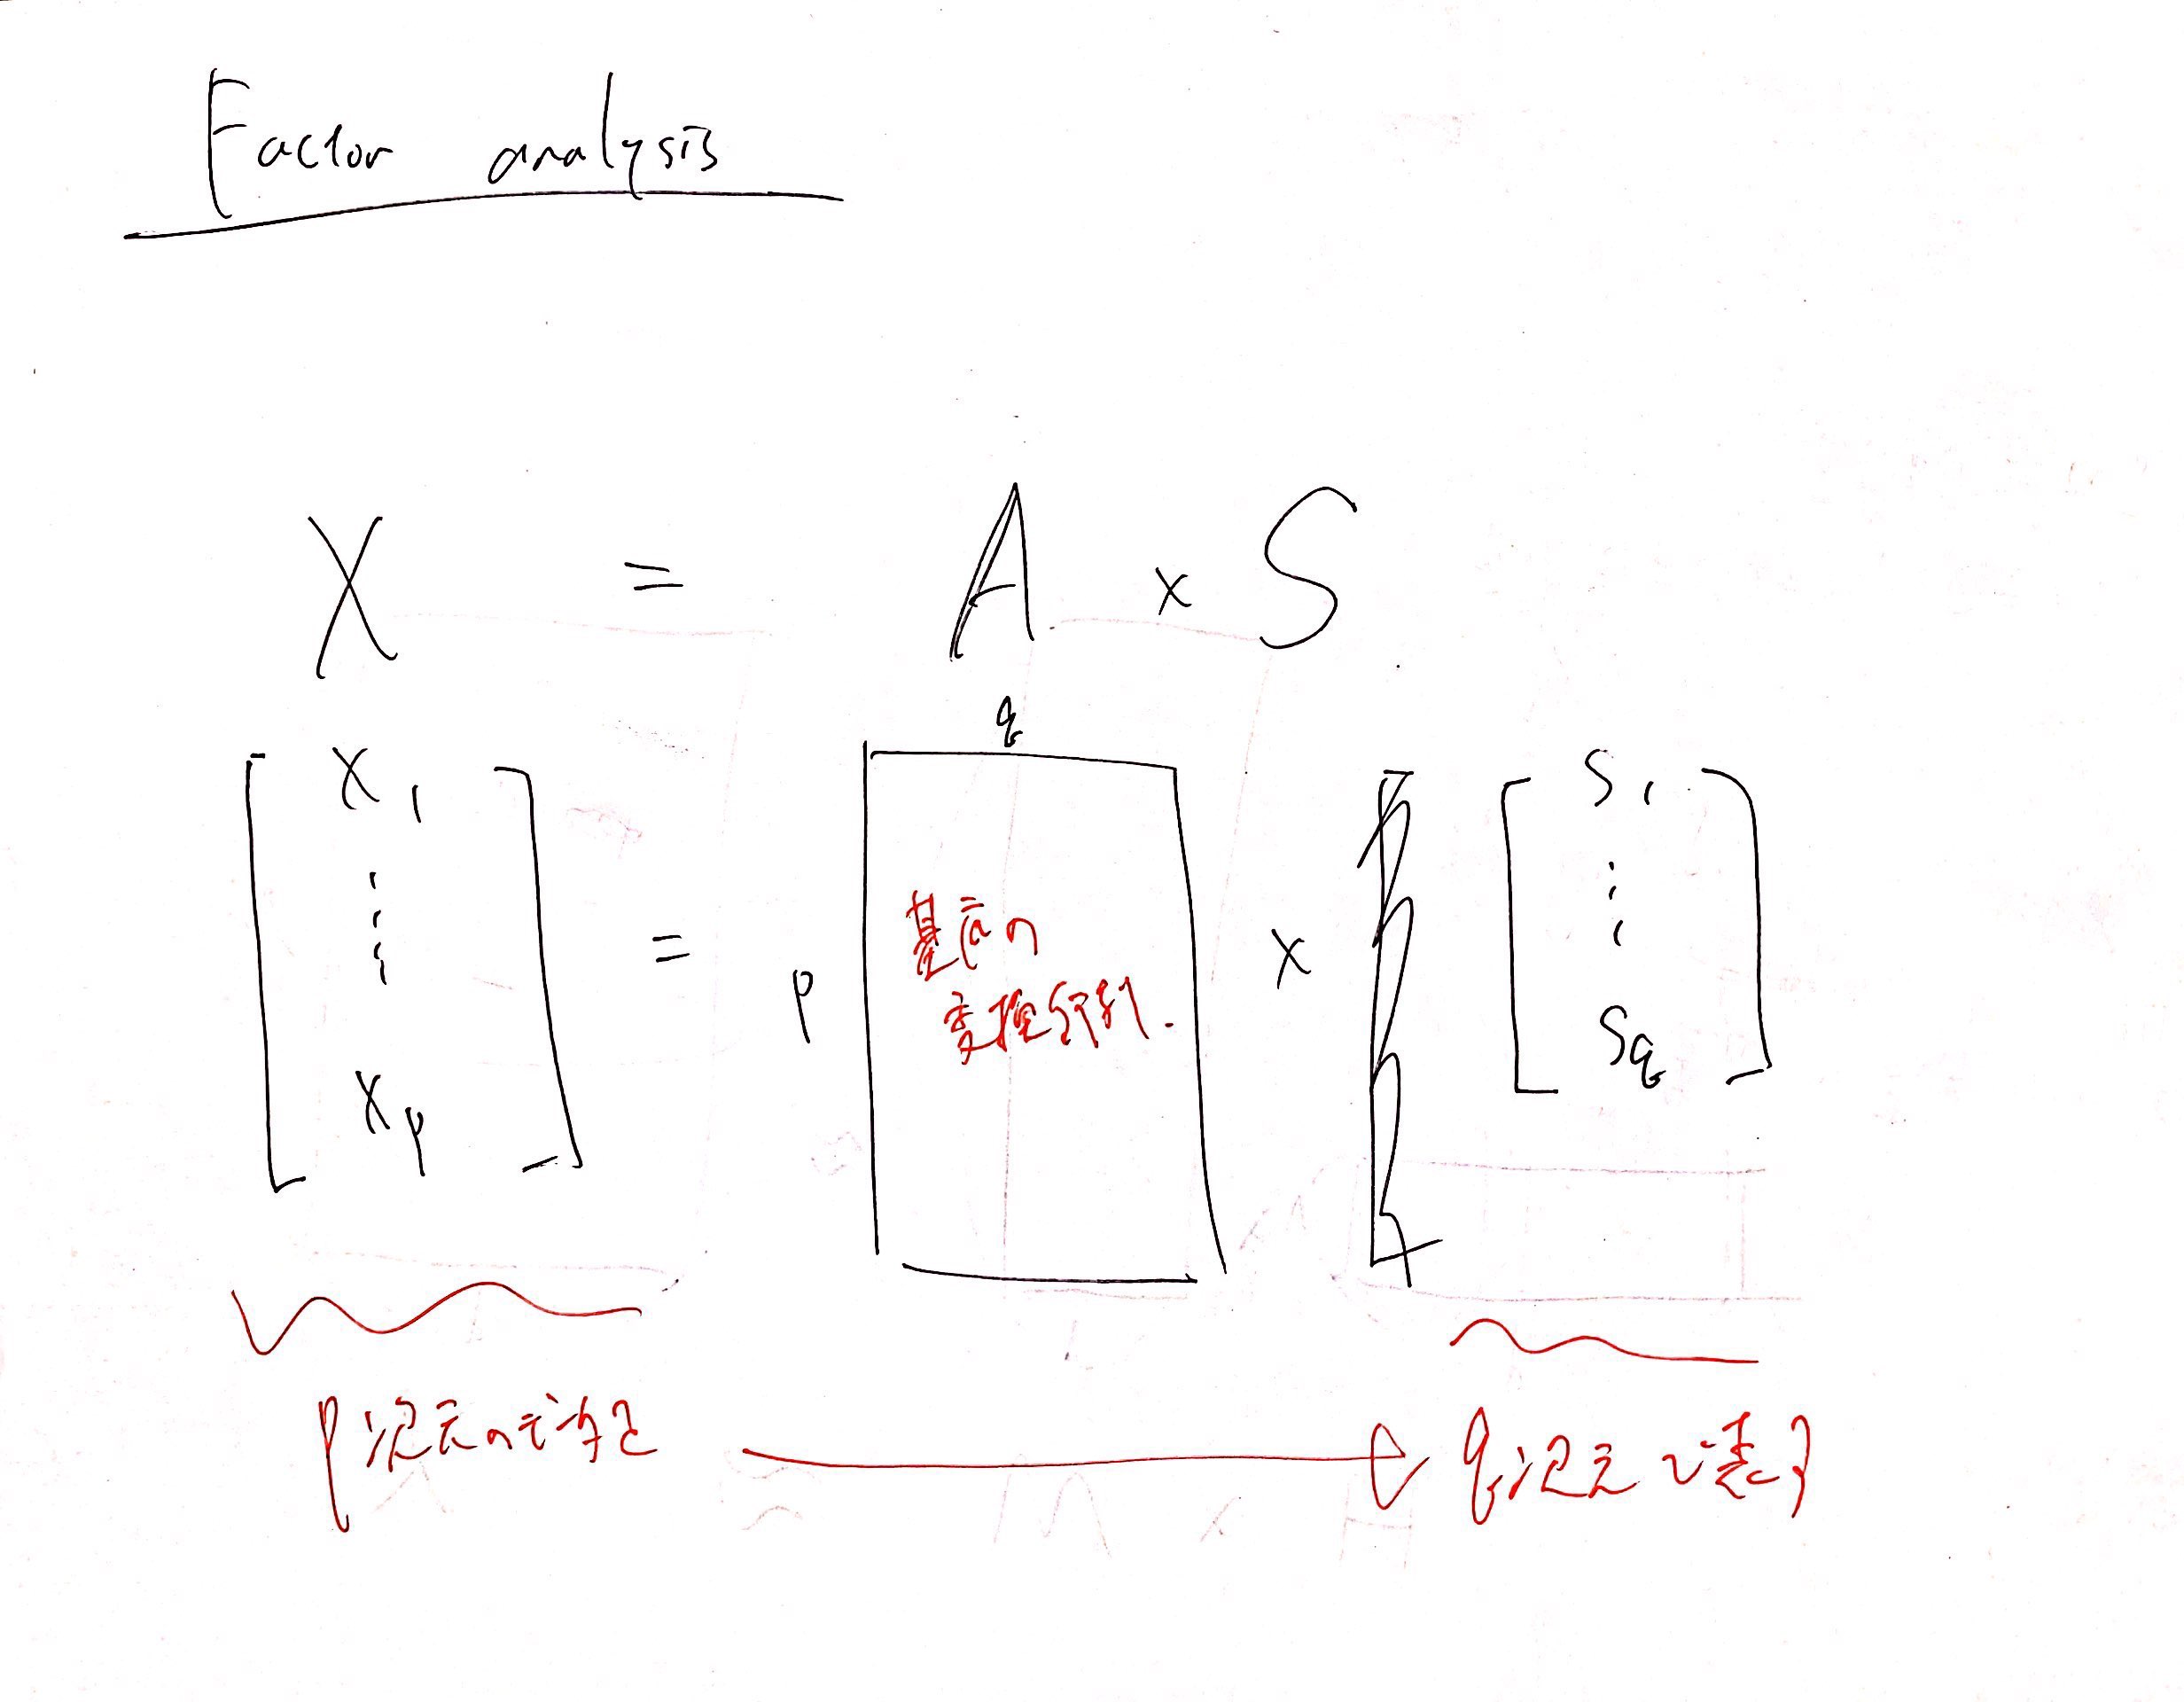 Factor analysis
X = A × S
q
[ x1 ⋮ xp ] = p [ 基底の 変換行列. ] × [ s1 ⋮ sq ]
p次元の
q次元で表す